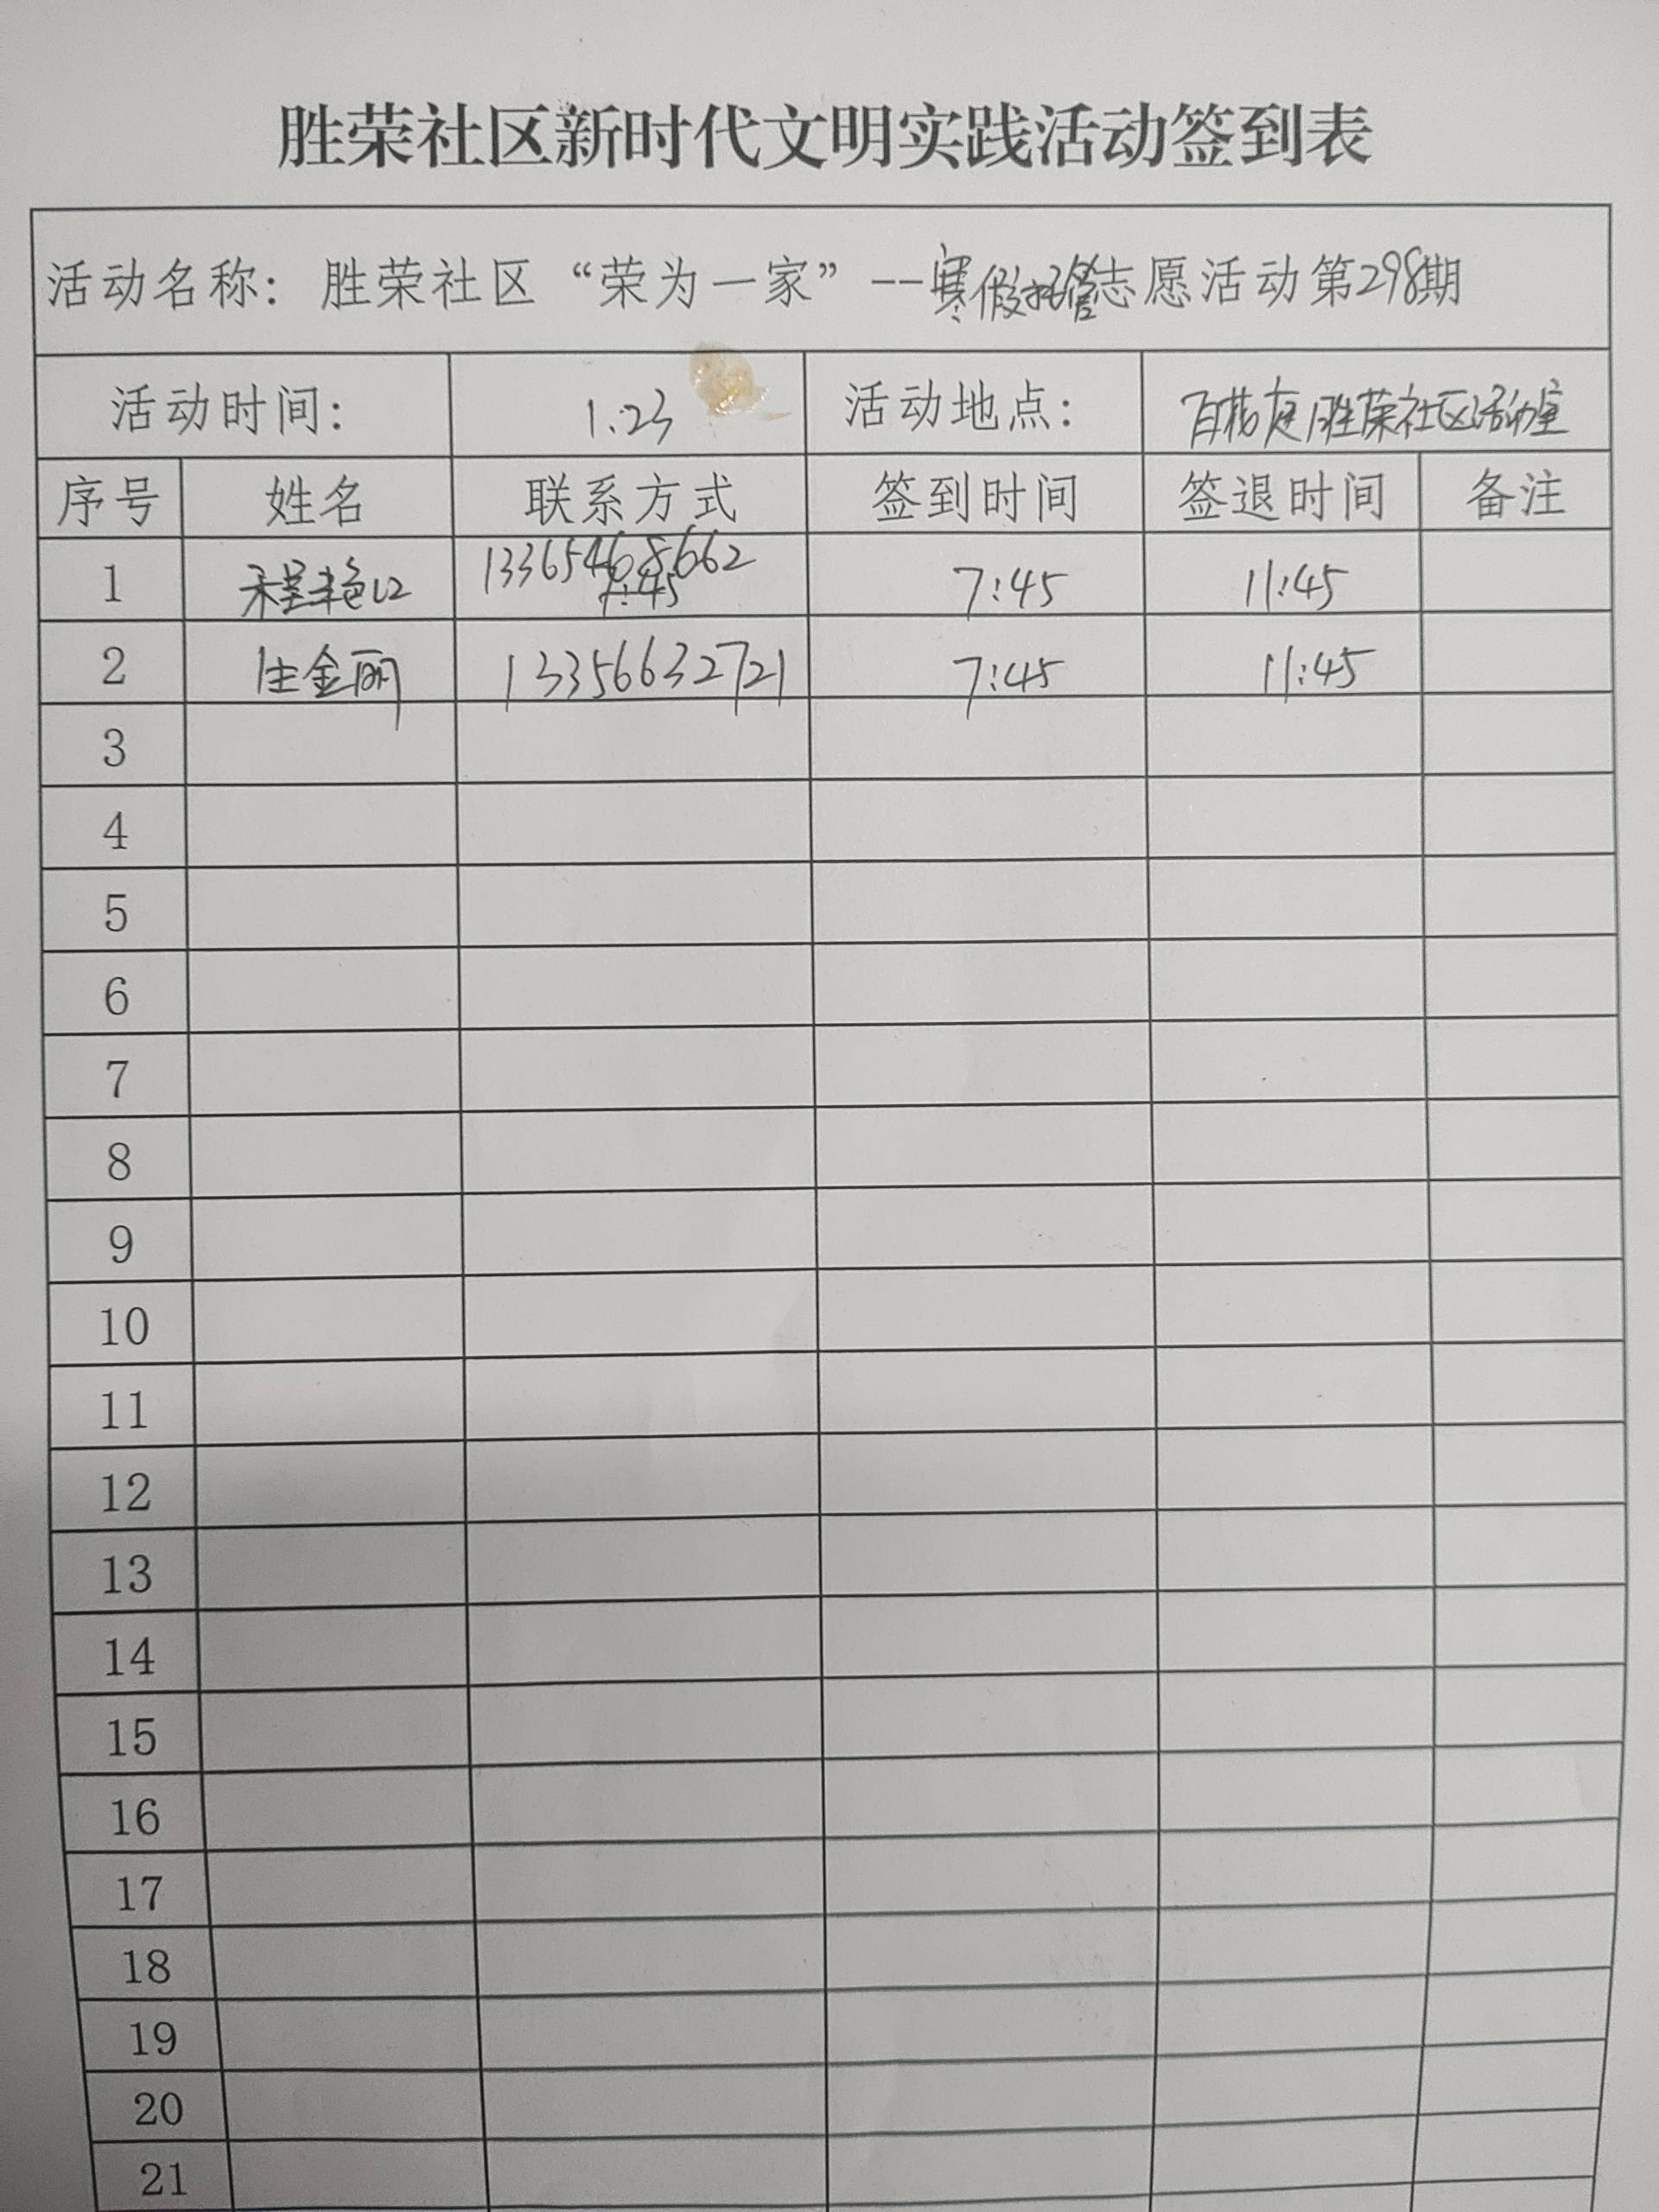 胜荣社区新时代文明实践活动签到表
活动名称：胜荣社区“荣为一家”--寒假托管志愿活动第298期
活动时间： 1.23 活动地点： 百花庭胜荣社区活动室
序号 姓名 联系方式 签到时间 签退时间 备注
1 13365468662 7:45 11:45
7:45
2 金丽 13356632721 7:45 11:45
3
4
5
6
7
8
9
10
11
12
13
14
15
16
17
18
19
20
21